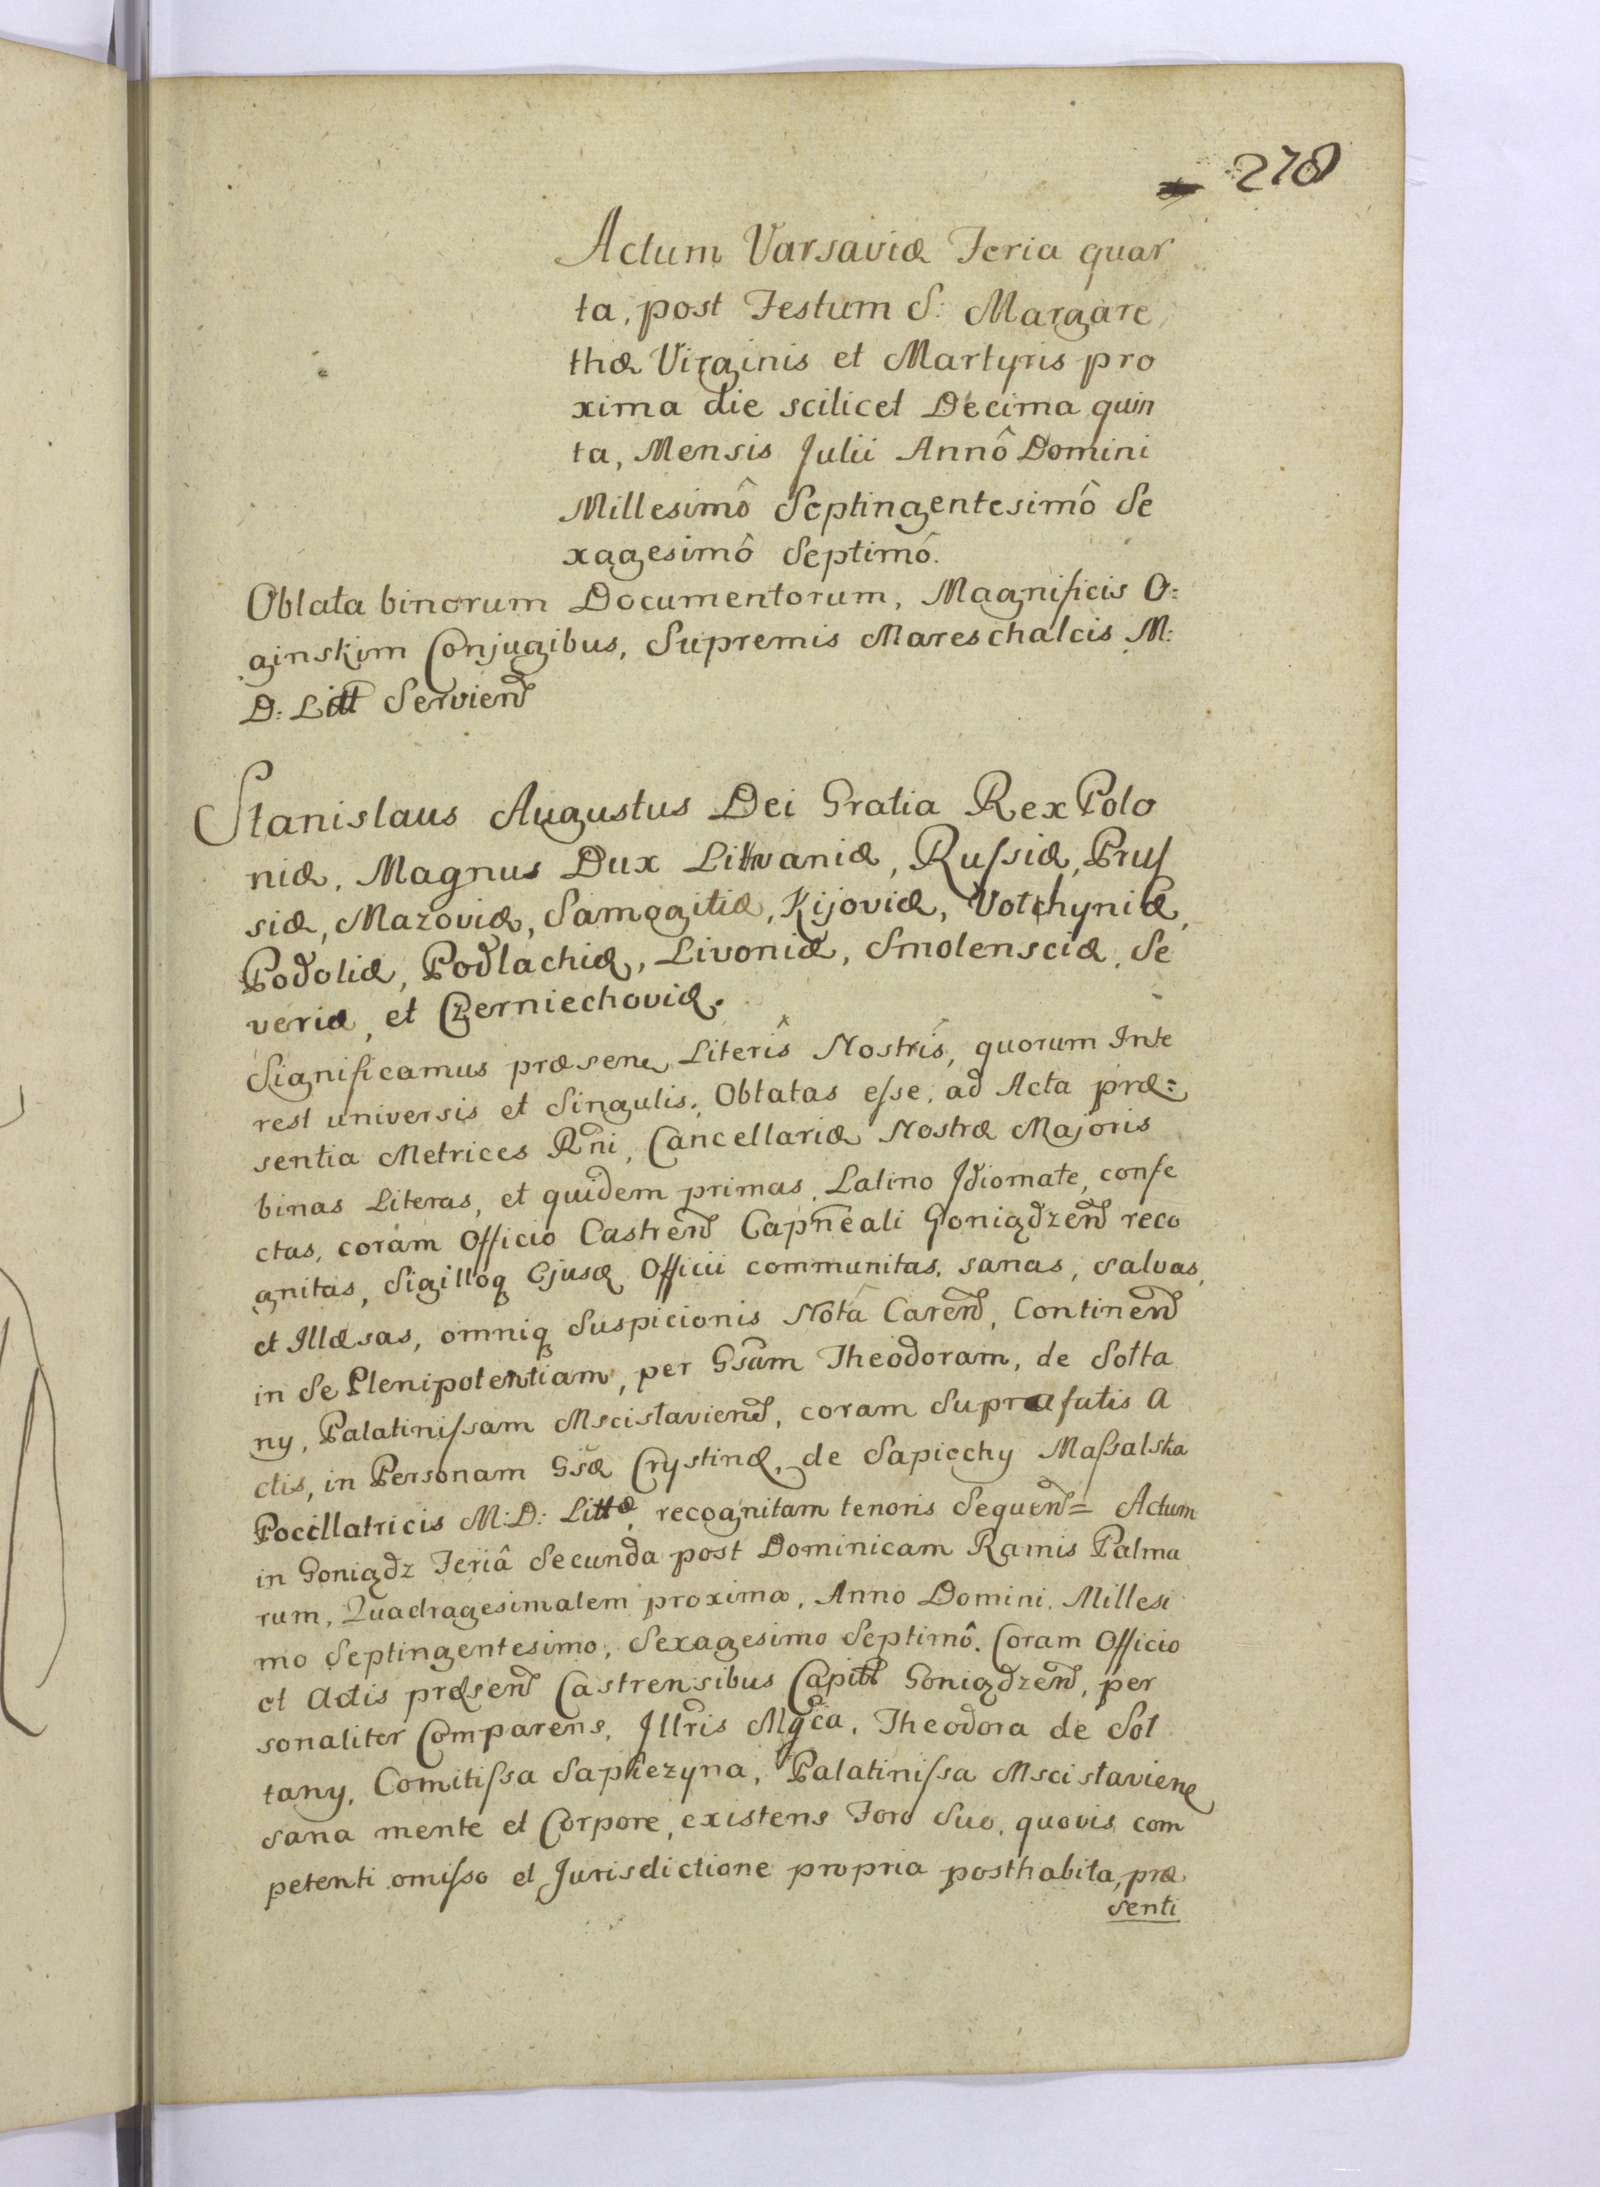 278
Actum Varsaviæ Feria quar
ta, post Festum S: Margare
thæ Virginis et Martyris pro
xima die scilicet Decima quin
ta, Mensis Julii Annô Domini
Millesimô Septingentesimô Se
xagesimô Septimô.
Oblata binorum Documentorum, Magnificis O:
ginskim Conjugibus, Supremis Mareschalcis M:
D: Litt Servien̄d
Stanislaus Augustus Dei Gratia Rex Polo
niæ, Magnus Dux Lithvaniæ, Ruſsiæ, Pruſ
siæ, Mazoviæ, Samogitiæ, Kijoviæ, Volhyniæ,
Podoliæ, Podlachiæ, Livoniæ, Smolensciæ, Se
veriæ, et Czerniechoviæ.
Significamus præsen, Literîs Nostrîs, quorum Inte
rest universis et Singulis, Oblatas eſse, ad Acta præ=
sentia Metrices Rn̄i, Cancellariæ Nostræ Majoris
binas Literas, et quidem primas, Latino Idiomate, confe
ctas, coram Officio Castren̄ Capn̄eali Goniądzen̄ reco
gnitas, Sigilloq Ejusq Officii communitas, sanas, salvas,
et Illæsas, omniq Suspicionis Notâ Caren̄, Continen̄
in Se Plenipotentiam, per Gsām Theodoram, de Solta
ny, Palatiniſsam Mscislavien̄, coram Supra fatis A
ctis, in Personam Gsæ Crystinæ, de Sapiechy Maſsalska
Pocillatricis M: D: Littæ, recognitam tenoris Sequen̄= Actum
in Goniądz Feriâ Secunda post Dominicam Ramis Palma
rum, Quadragesimalem proxima, Anno Domini, Millesi
mo Septingentesimo, Sexagesimo Septimô. Coram Officio
et Actis præsen̄ Castrensibus Capitl Goniądzen̄, per
sonaliter Comparens, Illr̄is Mgc̄a, Theodora de Sol
tany, Comitiſsa Sapiezyna, Palatiniſsa Mscislavien
sana mente et Corpore, existens Foro Suo, quovis com
petenti omiſso et Jurisdictione propria posthabita, præ
senti